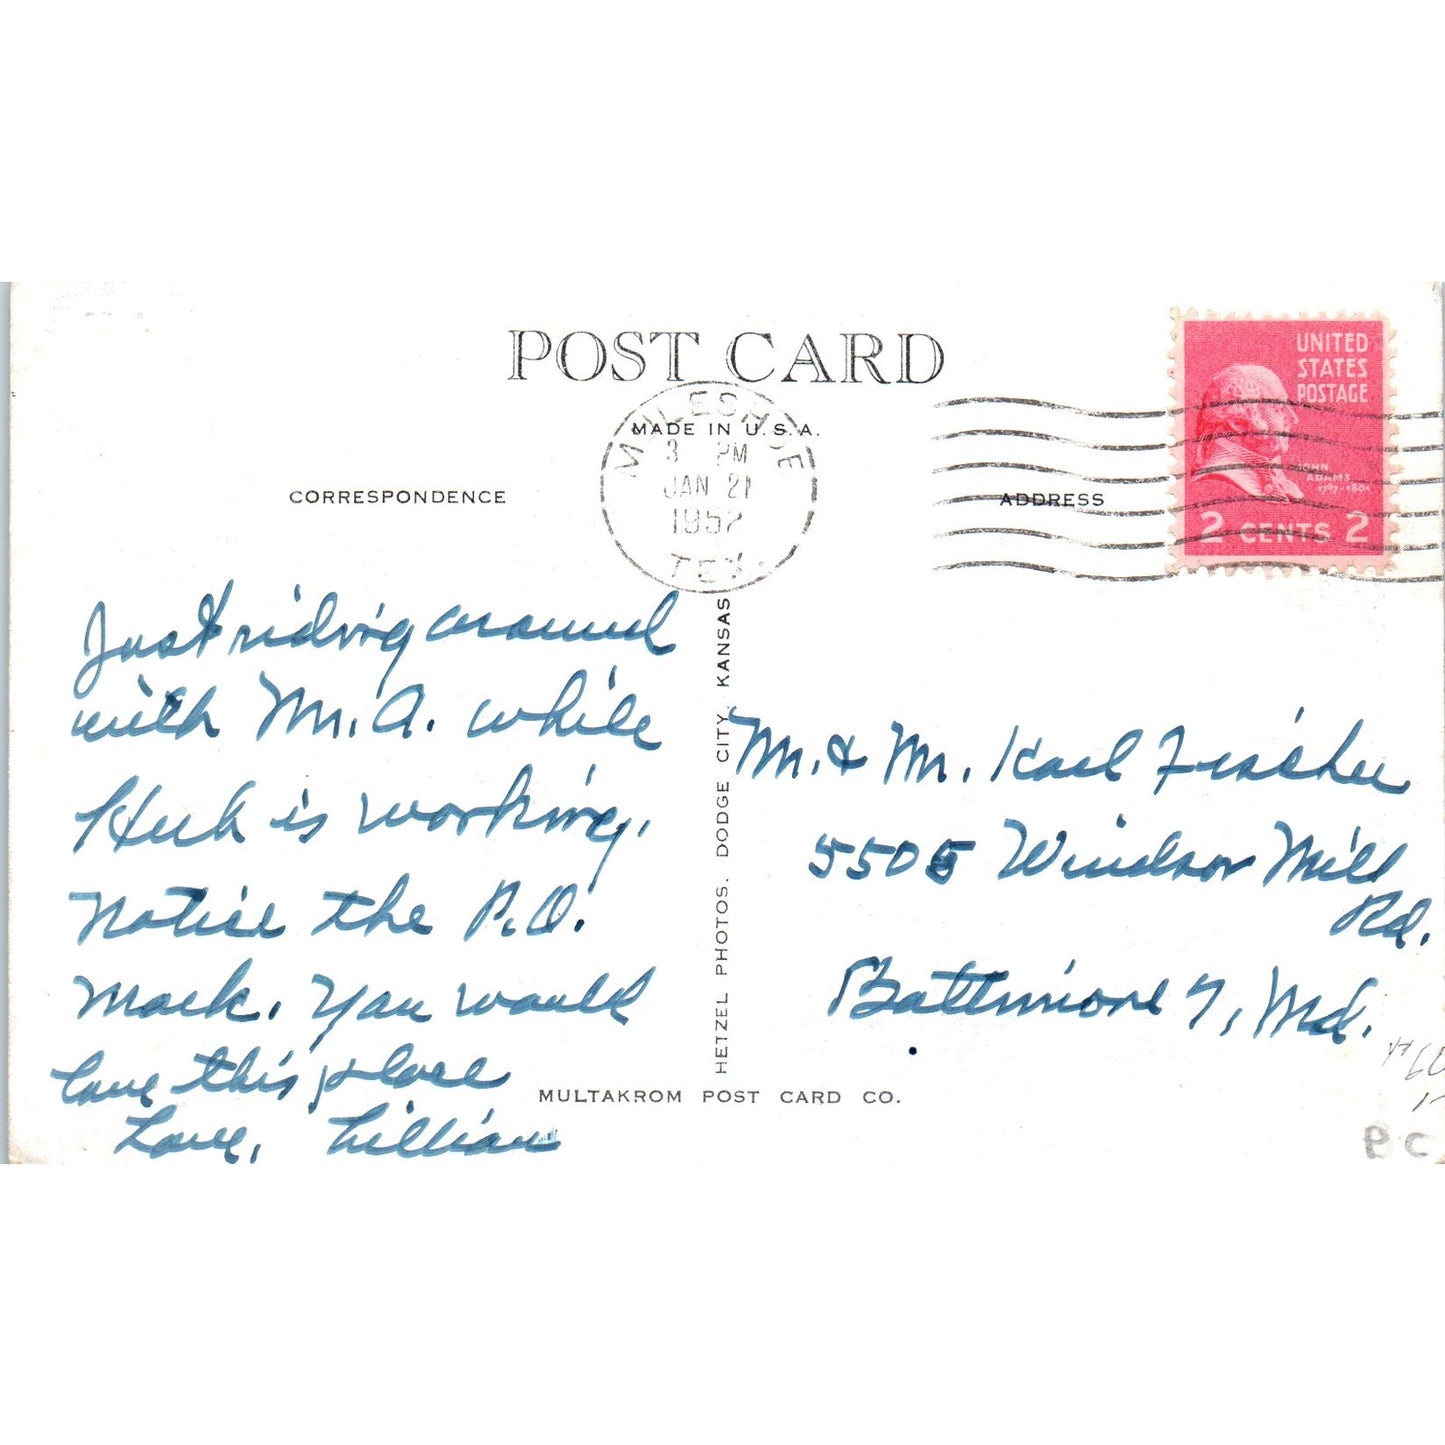 POST CARD
MADE IN U.S.A.
CORRESPONDENCE
ADDRESS
MULESHOE
3 PM
JAN 21
1952
TEX.
UNITED
STATES
POSTAGE
JOHN
ADAMS
1797-1801
2 CENTS 2
Just riding around
with Mr. A. while
Herb is working.
Notice the P.O.
Mark. You would
love this place
Love, Lillian
HETZEL PHOTOS. DODGE CITY, KANSAS
Mr. & Mr. Karl Fischer
5505 Windsor Mill
Rd.
Baltimore 7, Md.
MULTAKROM POST CARD CO.
PC